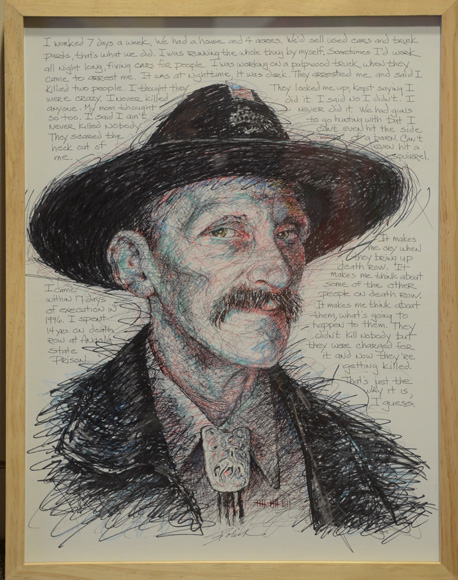 I worked 7 days a week, we had a house and 4 acres. We'd sell used cars and truck
parts, that's what we did. I was running the whole thing by myself. Sometimes I'd work
all night long, fixing cars for people. I was working on a pulpwood truck, when they
came to arrest me. It was at nighttime, it was dark. They arrested me and said I
killed two people. I thought they
were crazy. I never killed
anyone. My mom thought
so too. I said I ain't
never killed nobody.
They scared the
heck out of
me.
They locked me up, kept saying I
did it. I said No I didn't. I
never did it. We had guns
to go hunting with but I
can't even hit the side
of a barn. Can't
even hit a
squirrel.
I came
within 17 days
of execution in
1996. I spent
14 yrs on death
row at Angola
State
Prison.
It makes
me cry when
they bring up
death row. It
makes me think about
some of the other
people on death row.
It makes me think about
them, what's going to
happen to them. They
didn't kill nobody but
they were charged for
it and now they're
getting killed.
That's just the
way it is,
I guess.